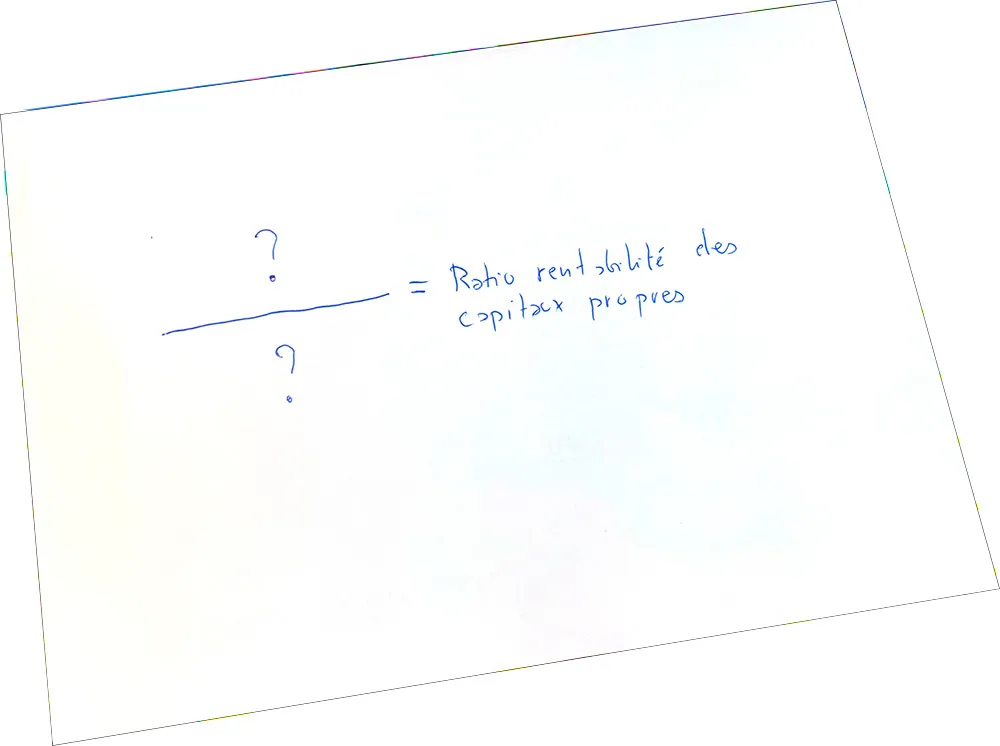 ?
= Ratio rentabilité des
capitaux propres
?